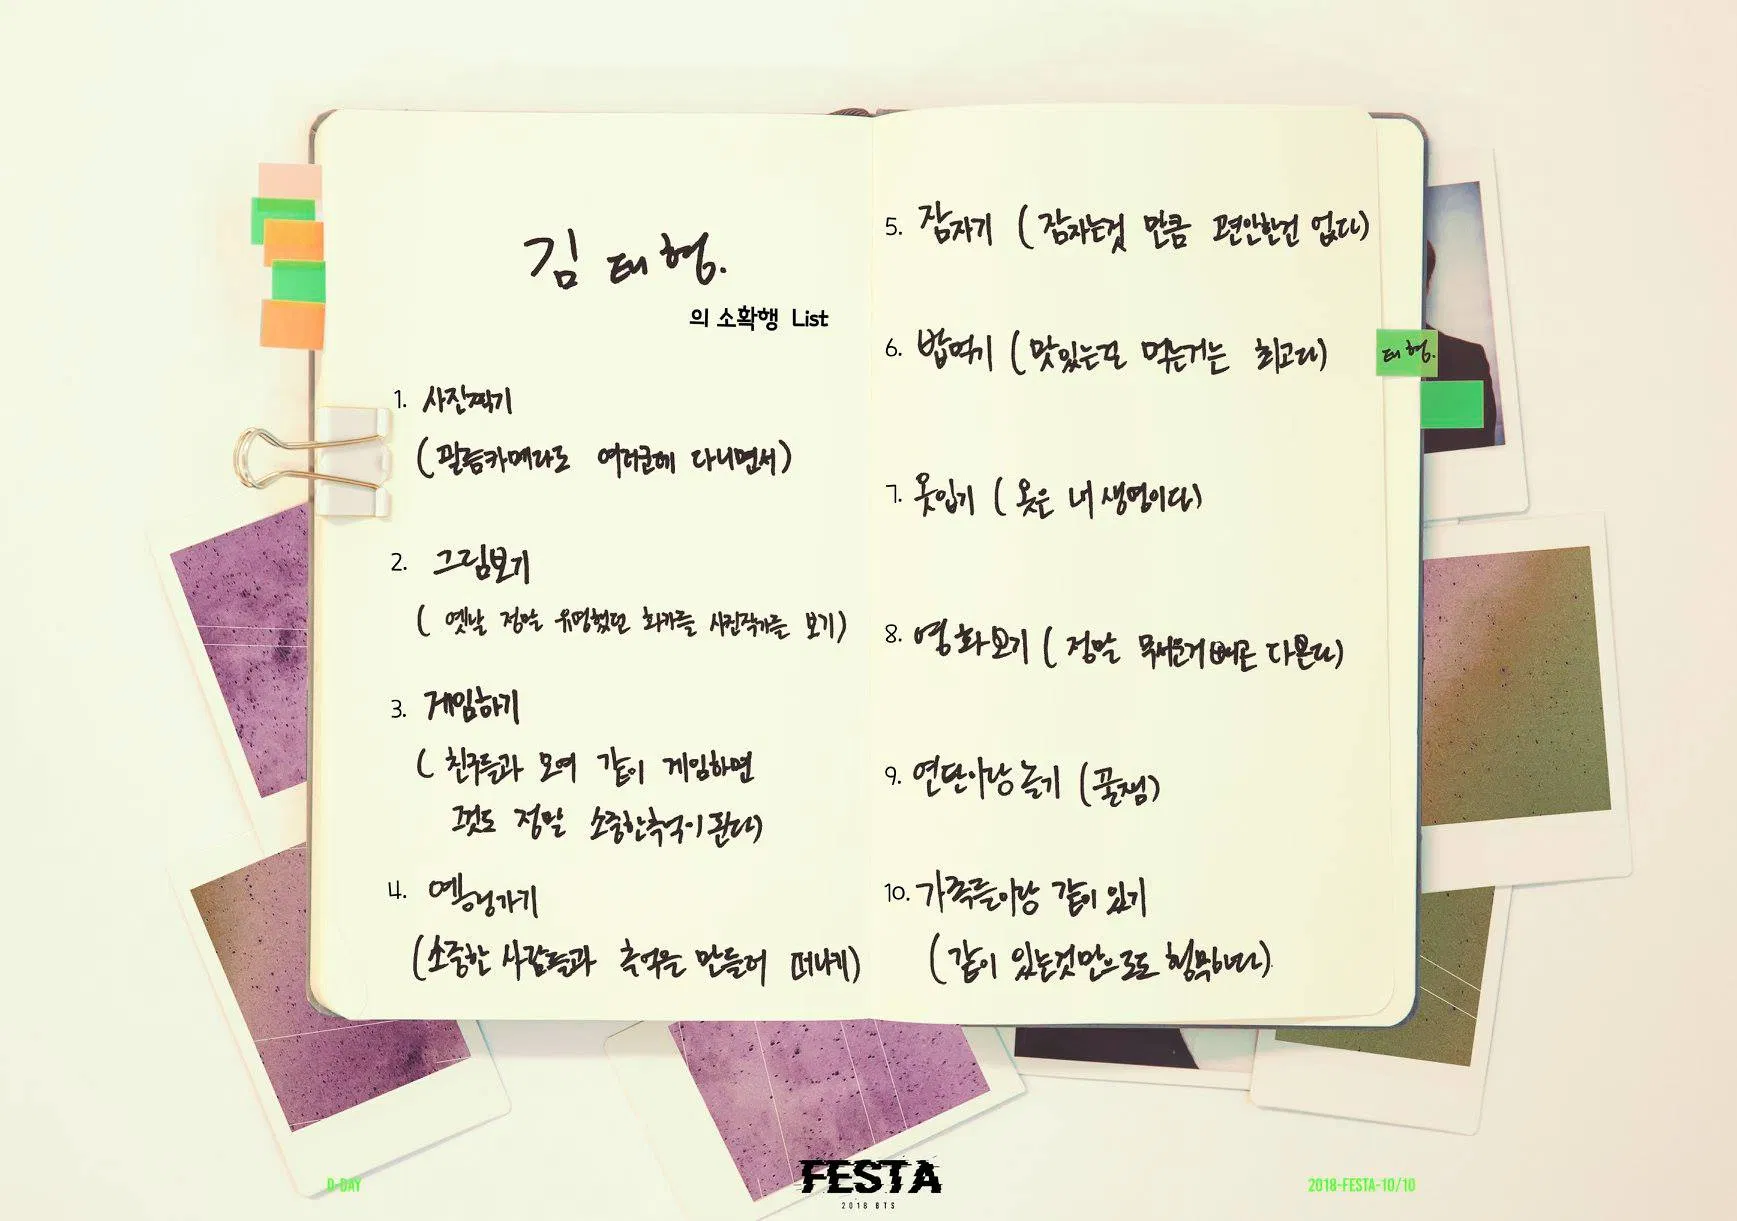 김태형.
의 소확행 List
1. 사진찍기
(필름카메라도 여러군데 다니면서)
2. 그림보기
( 옛날 정말 유명했던 화가를 사진작가를 보기)
3. 게임하기
( 친구들과 모여 같이 게임하면
그것도 정말 소중한추억이 된다)
4. 여행가기
(소중한 사람들과 추억을 만들어 떠나게)
5. 잠자기 ( 잠자는것 만큼 편안한건 없다)
6. 밥먹기 ( 맛있는것 먹는거는 최고다)
7. 옷입기 ( 옷은 내 생명이다)
8. 영화보기 ( 정말 무서운거 빼곤 다본다)
9. 연탄이랑 놀기 (꿀잼)
10. 가족들이랑 같이 있기
(같이 있는것만으로도 행복하다)
태형.
D-DAY
FESTA
2018 BTS
2018-FESTA-10/10